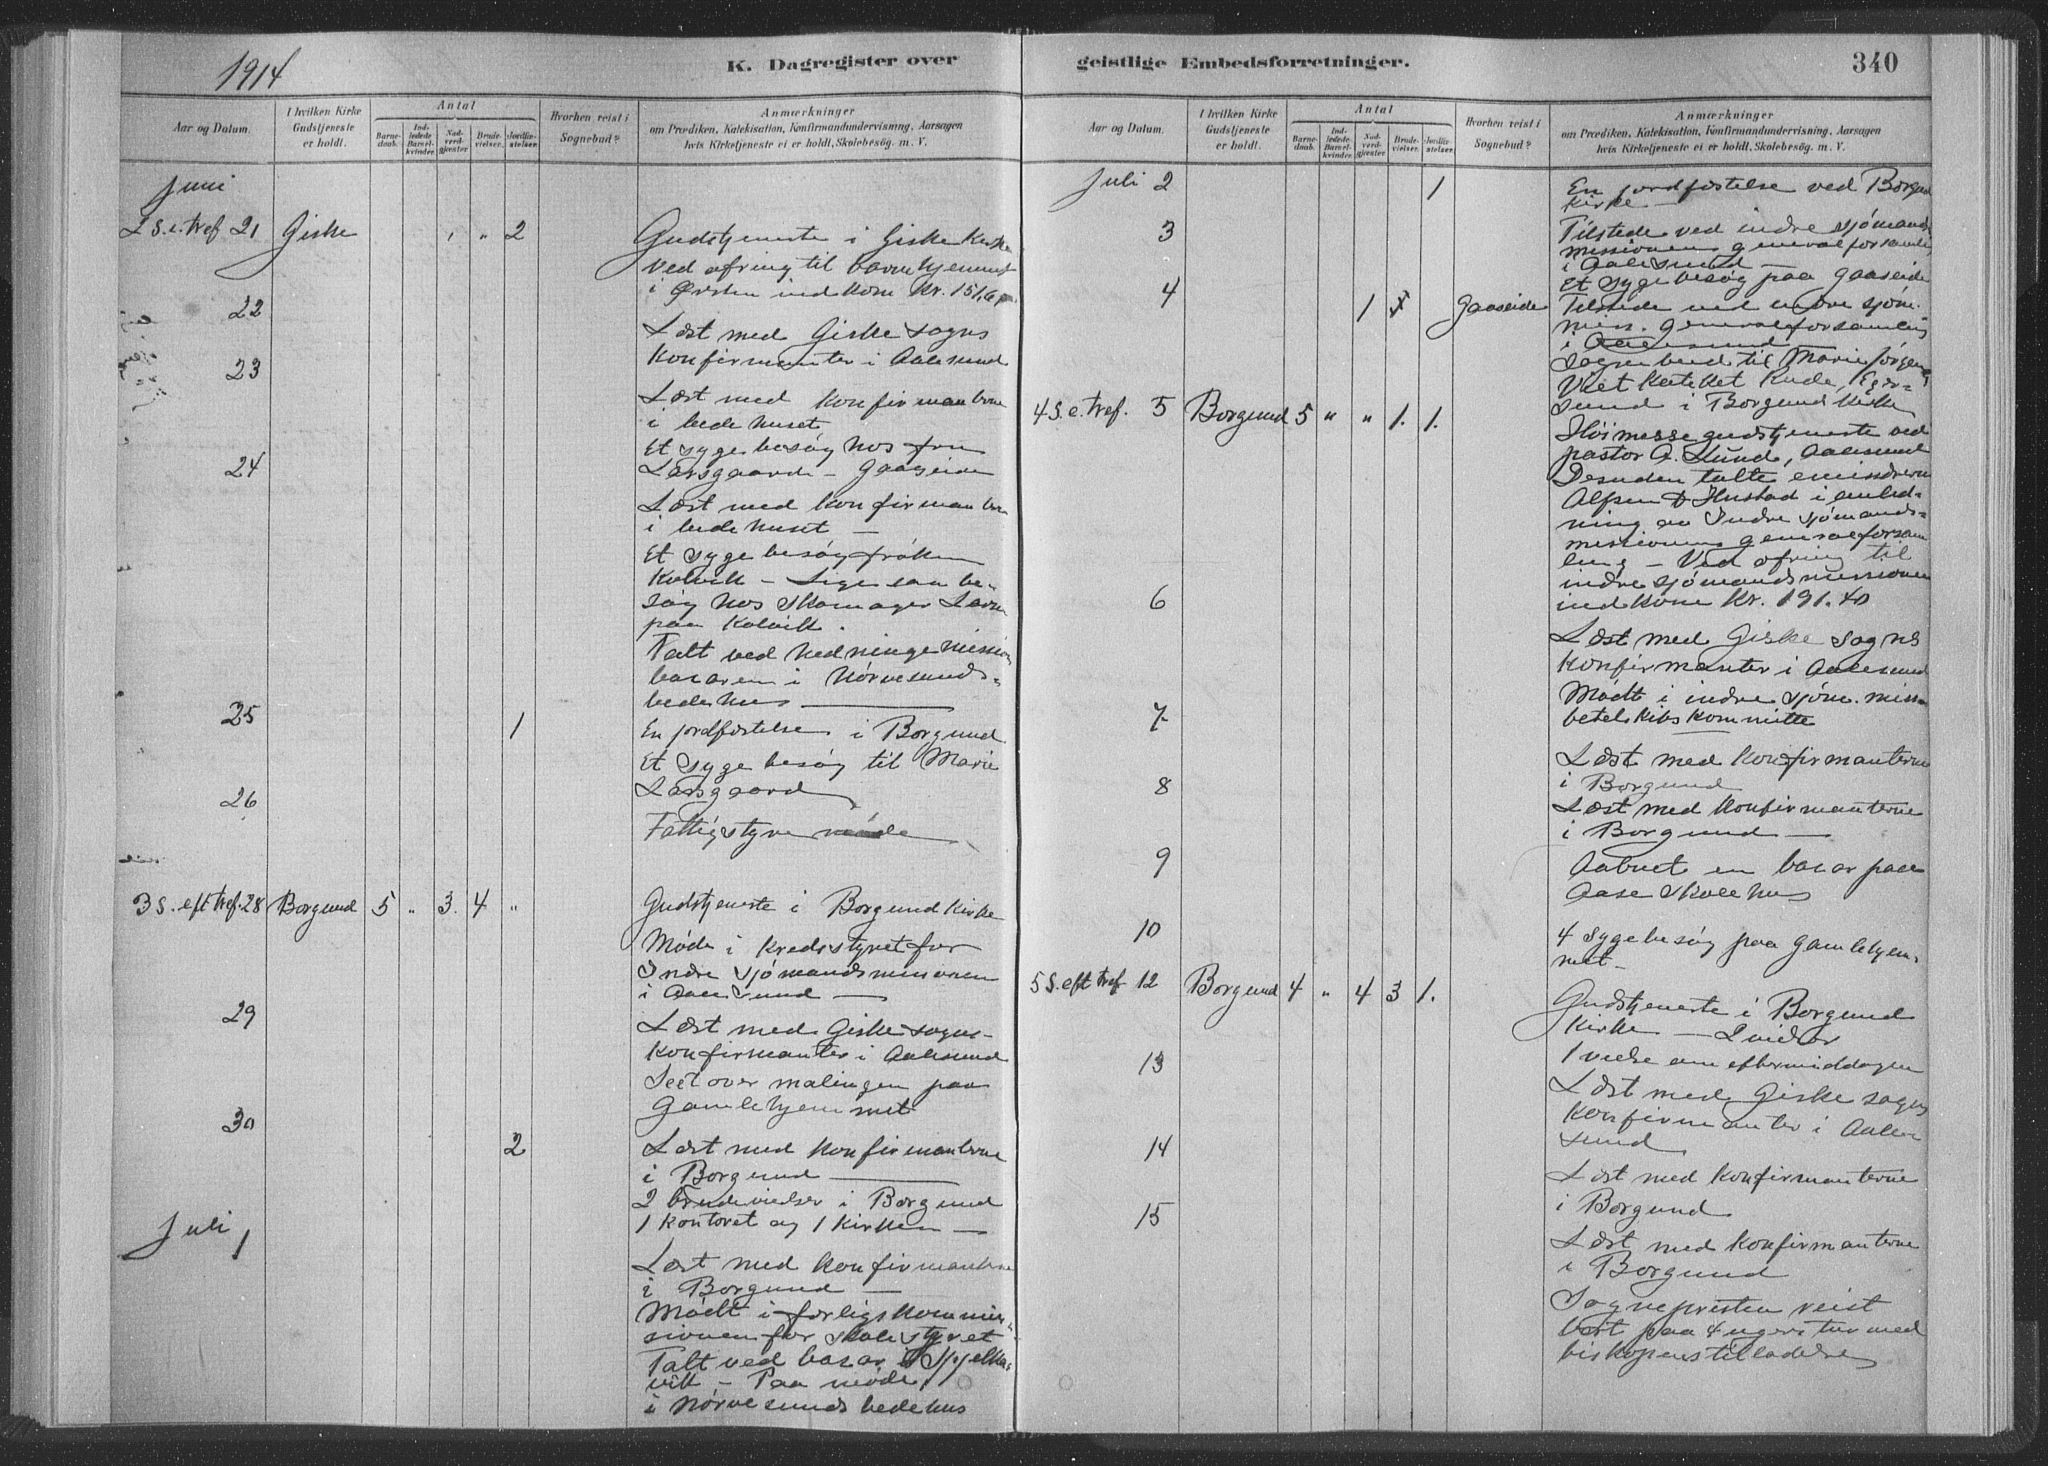 1914
K. Dagregister over
Aar og Datum.
I hvilken Kirke Gudstjeneste er holdt.
Antal
Barnedaab.
Indledede Barselkvinder.
Nadverdgjester
Brudevielser.
Jordfæstelser.
Hvorhen reist i Sognebud?
Anmærkninger
om Prædiken, Katekisation, Konfirmandundervisning, Aarsagen
hvis Kirketjeneste ei er holdt, Skolebesøg. m. V.
Juni
2 S. e. tref 21 Giske „ 2 Gudstjeneste i Giske Kirke
Ved ofring til barnehjemmet
i Ørsten indkom Kr. 151,
22
Læst med Giske sogns
Konfirmanter i Aalesund
23
Læst med Konfirmanterne
i bedehuset
Et sygebesøg hos fru
24
Larsgaard – Gaaseide
Læst med Konfirmanterne
i bedehuset –
Et sygebesøg frøken
Kolvik – Ligesaa be-
søg hos Skomager
paa Kolvik.
Talt ved hedningemission
basaren i Nørvesunds-
bedehus –
25 1 En jordfæstelse i Borgund
Et sygebesøg til Marie
Larsgaard
26
Fattigstyremøde
3 S. eft tref. 28 Borgund 5 „ 3. 4 „ Gudstjeneste i Borgund Kirke
Møde i Kredsstyret for
Indre Sjømandsmissionen
i Aalesund –
29
Læst med Giske sogns-
Konfirmanter i Aalesund
Seet over malingen paa
Gamlehjemmet
30
2 Læst med Konfirmanterne
i Borgund –
2 brudevielser i Borgund
1 Kontoret og 1 Kirken –
Juli 1
Læst med Konfirmanterne
i Borgund –
Mødt i forligskommis-
sionen for Skolestyret
Talt ved basar i Spjelka-
vik – Paa møde
i Nørvesunds bedehus
geistlige Embedsforretninger.
340
Aar og Datum.
I hvilken Kirke Gudstjeneste er holdt.
Antal
Barnedaab.
Indledede Barselkvinder.
Nadverdgjester
Brudevielser.
Jordfæstelser.
Hvorhen reist i Sognebud?
Anmærkninger
om Prædiken, Katekisation, Konfirmandundervisning, Aarsagen
hvis Kirketjeneste ei er holdt, Skolebesøg. m. V.
Juli 2 1 En jordfæstelse ved Borgund
Kirke –
3 Tilstede ved indre sjømands
missionens generalforsamling
i Aalesund –
Et sygebesøg paa Gaaseide
4 1 Gaaseide Tilstede ved indre sjøm.
miss. generalforsamling
i Aalesund
Sognebud til Marie Jørgens
Viet Kateket Rude, Eger-
sund i Borgund Kirke
4 S. e. tref. 5 Borgund 5 „ „ 1. 1.
Høimessegudstjeneste ved
pastor A. Lund, Aalesund
Desuden talte emissærerne
Alfsen & Hustad i anled-
ning av Indre Sjømands-
missionens generalforsam
ling – Ved ofring til
indre sjømandsmissionen
indkom Kr. 191.40
6
Læst med Giske sogns
Konfirmanter i Aalesund
Mødt i indre sjøm. miss.
betelskibskommitte
7
Læst med Konfirmanterne
i Borgund
8
Læst med Konfirmanterne
i Borgund –
9
Aabnet en basar paa
Aase Skolehus
10
4 sygebesøg paa Gamlehjem-
met –
5 S. eft tref 12 Borgund 4 „ 4 3 1.
Gudstjeneste i Borgund
Kirke – 2 vielser
1 vielse om eftermiddagen
13
Læst med Giske sogns
Konfirmanter i Aale
sund
14
Læst med Konfirmanterne
i Borgund
15
Læst med Konfirmanterne
i Borgund
Sognepresten reist
bort paa 4 ugers tur med
biskopens tilladelse